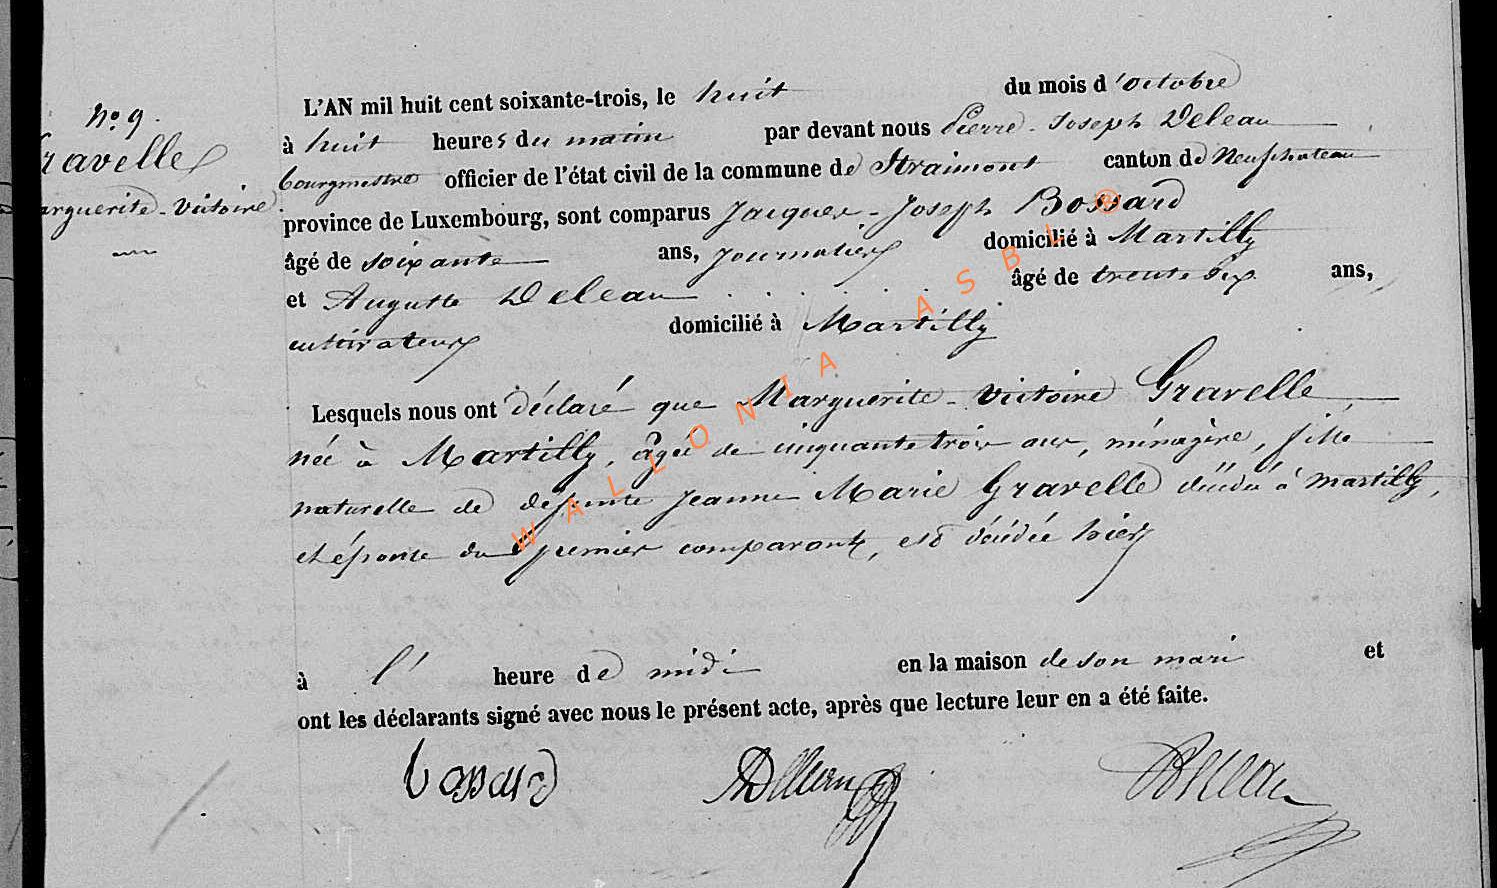 No 9.
Gravelle
Marguerite-Victoire
L'AN mil huit cent soixante-trois, le huit du mois d'octobre
à huit heures du matin par devant nous Pierre-Joseph Deleau
bourgmestre officier de l'état civil de la commune de Straimont canton de Neufchateau
province de Luxembourg, sont comparus Jacques-Joseph Bossard
âgé de soixante ans, journalier domicilié à Martilly
et Auguste Deleau âgé de trente six ans,
cultivateur domicilié à Martilly
Lesquels nous ont déclaré que Marguerite-Victoire Gravelle,
née à Martilly, âgée de cinquante trois ans, ménagère, fille
naturelle de défunte Jeanne Marie Gravelle décédée à Martilly,
et épouse du premier comparant, est décédée hier
à l' heure de midi en la maison de son mari et
ont les déclarants signé avec nous le présent acte, après que lecture leur en a été faite.
bossard ADeleau Deleau
WALLONIA ASBL ®